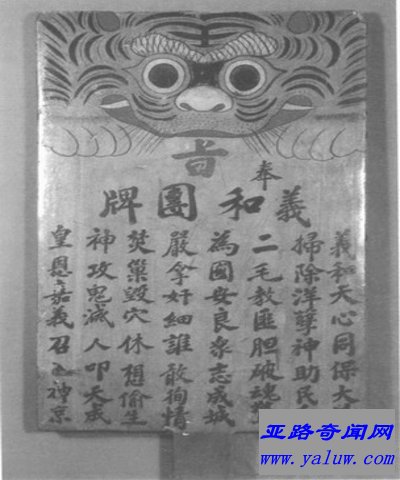 奉
旨
義和團牌
義和天心同保大
掃除洋孽神助民
二毛教匪胆破魂
為國安良衆志成城
嚴拿奸細誰敢徇情
焚巢毀穴休想偷生
神攻鬼滅人叩天成
皇恩嘉義召神京
亚路奇闻网
www.yaluw.com